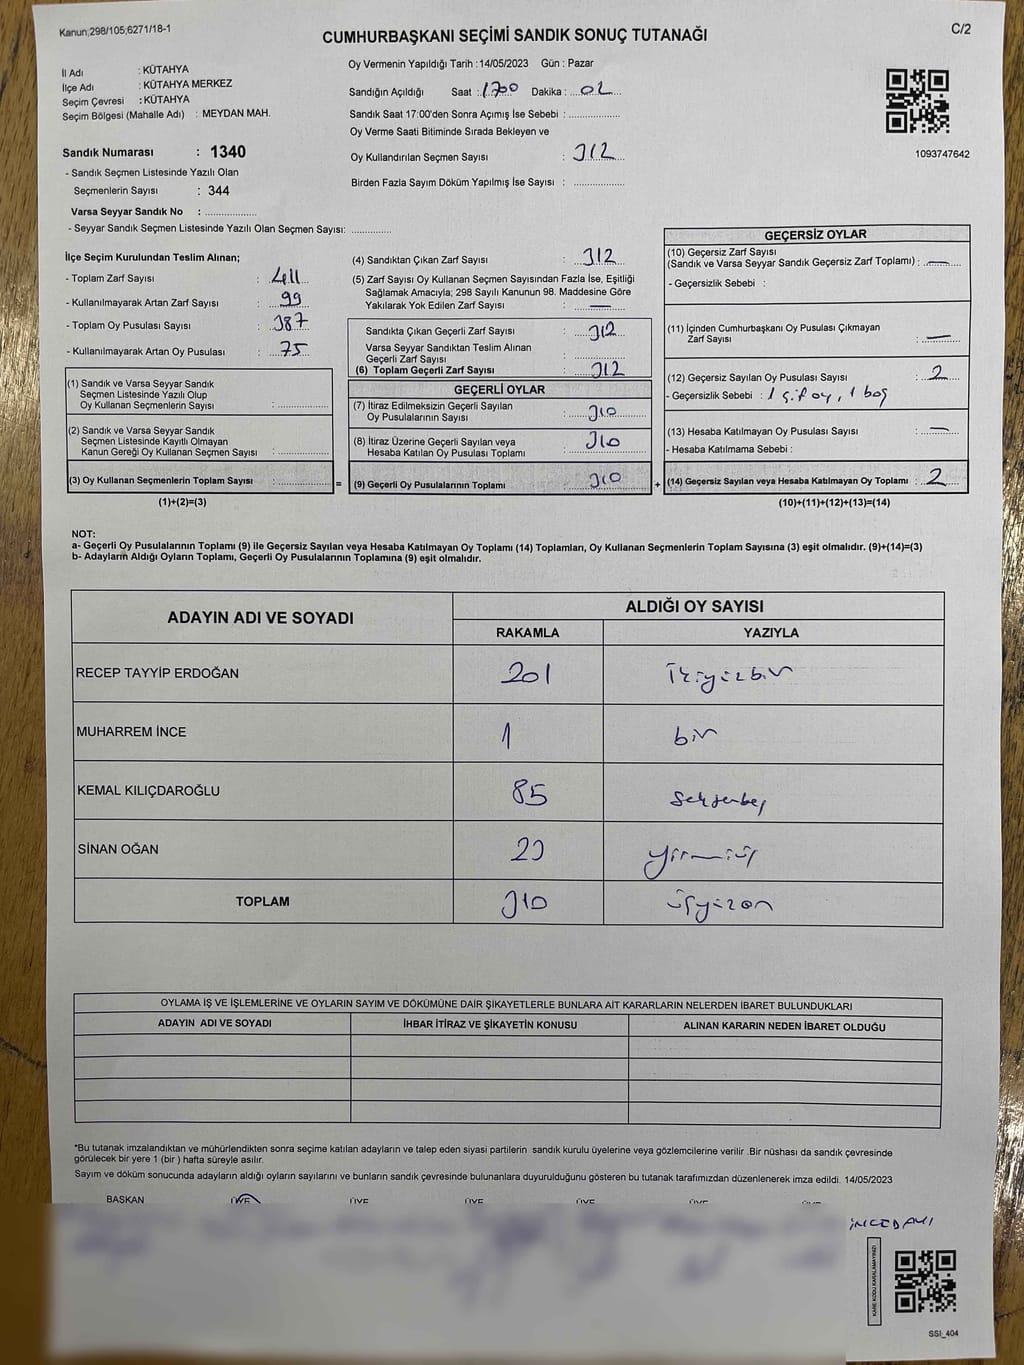 Kanun;298/105;6271/18-1
C/2
CUMHURBAŞKANI SEÇİMİ SANDIK SONUÇ TUTANAĞI
İl Adı : KÜTAHYA
İlçe Adı : KÜTAHYA MERKEZ
Seçim Çevresi : KÜTAHYA
Seçim Bölgesi (Mahalle Adı) : MEYDAN MAH.
Sandık Numarası : 1340
- Sandık Seçmen Listesinde Yazılı Olan
Seçmenlerin Sayısı : 344
Varsa Seyyar Sandık No : ..................
- Seyyar Sandık Seçmen Listesinde Yazılı Olan Seçmen Sayısı: .............
Oy Vermenin Yapıldığı Tarih : 14/05/2023 Gün : Pazar
Sandığın Açıldığı Saat : 1700 Dakika : 02
Sandık Saat 17:00'den Sonra Açımış İse Sebebi : ..................
Oy Verme Saati Bitiminde Sırada Bekleyen ve
Oy Kullandırılan Seçmen Sayısı : 312
Birden Fazla Sayım Döküm Yapılmış İse Sayısı : ..................
1093747642
İlçe Seçim Kurulundan Teslim Alınan;
- Toplam Zarf Sayısı : 411
- Kullanılmayarak Artan Zarf Sayısı : 99
- Toplam Oy Pusulası Sayısı : 387
- Kullanılmayarak Artan Oy Pusulası : 75
(1) Sandık ve Varsa Seyyar Sandık
Seçmen Listesinde Yazılı Olup
Oy Kullanan Seçmenlerin Sayısı : ..................
(2) Sandık ve Varsa Seyyar Sandık
Seçmen Listesinde Kayıtlı Olmayan
Kanun Gereği Oy Kullanan Seçmen Sayısı : ..................
(3) Oy Kullanan Seçmenlerin Toplam Sayısı : .................. =
(1)+(2)=(3)
(4) Sandıktan Çıkan Zarf Sayısı : 312
(5) Zarf Sayısı Oy Kullanan Seçmen Sayısından Fazla İse, Eşitliği
Sağlamak Amacıyla; 298 Sayılı Kanunun 98. Maddesine Göre
Yakılarak Yok Edilen Zarf Sayısı : —
Sandıkta Çıkan Geçerli Zarf Sayısı : 312
Varsa Seyyar Sandıktan Teslim Alınan
Geçerli Zarf Sayısı : ..................
(6) Toplam Geçerli Zarf Sayısı : 312
GEÇERLİ OYLAR
(7) İtiraz Edilmeksizin Geçerli Sayılan
Oy Pusulalarının Sayısı : 310
(8) İtiraz Üzerine Geçerli Sayılan veya
Hesaba Katılan Oy Pusulası Toplamı : 310
(9) Geçerli Oy Pusulalarının Toplamı : 310 +
GEÇERSİZ OYLAR
(10) Geçersiz Zarf Sayısı
(Sandık ve Varsa Seyyar Sandık Geçersiz Zarf Toplamı) : —
- Geçersizlik Sebebi :
(11) İçinden Cumhurbaşkanı Oy Pusulası Çıkmayan
Zarf Sayısı : —
(12) Geçersiz Sayılan Oy Pusulası Sayısı : 2
- Geçersizlik Sebebi : 1 çift oy, 1 boş
(13) Hesaba Katılmayan Oy Pusulası Sayısı : —
- Hesaba Katılmama Sebebi :
(14) Geçersiz Sayılan veya Hesaba Katılmayan Oy Toplamı : 2
(10)+(11)+(12)+(13)=(14)
NOT:
a- Geçerli Oy Pusulalarının Toplamı (9) ile Geçersiz Sayılan veya Hesaba Katılmayan Oy Toplamı (14) Toplamları, Oy Kullanan Seçmenlerin Toplam Sayısına (3) eşit olmalıdır. (9)+(14)=(3)
b- Adayların Aldığı Oyların Toplamı, Geçerli Oy Pusulalarının Toplamına (9) eşit olmalıdır.
ADAYIN ADI VE SOYADI
ALDIĞI OY SAYISI
RAKAMLA YAZIYLA
RECEP TAYYİP ERDOĞAN 201 ikiyüzbir
MUHARREM İNCE 1 bir
KEMAL KILIÇDAROĞLU 85 seksenbeş
SİNAN OĞAN 23 yirmiüç
TOPLAM 310 üçyüzon
OYLAMA İŞ VE İŞLEMLERİNE VE OYLARIN SAYIM VE DÖKÜMÜNE DAİR ŞİKAYETLERLE BUNLARA AİT KARARLARIN NELERDEN İBARET BULUNDUKLARI
ADAYIN ADI VE SOYADI İHBAR İTİRAZ VE ŞİKAYETİN KONUSU ALINAN KARARIN NEDEN İBARET OLDUĞU
*Bu tutanak imzalandıktan ve mühürlendikten sonra seçime katılan adayların ve talep eden siyasi partilerin sandık kurulu üyelerine veya gözlemcilerine verilir .Bir nüshası da sandık çevresinde
görülecek bir yere 1 (bir ) hafta süreyle asılır.
Sayım ve döküm sonucunda adayların aldığı oyların sayılarını ve bunların sandık çevresinde bulunanlara duyurulduğunu gösteren bu tutanak tarafımızdan düzenlenerek imza edildi. 14/05/2023
BAŞKAN ÜYE ÜYE ÜYE ÜYE ÜYE ÜYE
KARE KODU KARALAMAYINIZ!
SSI_404